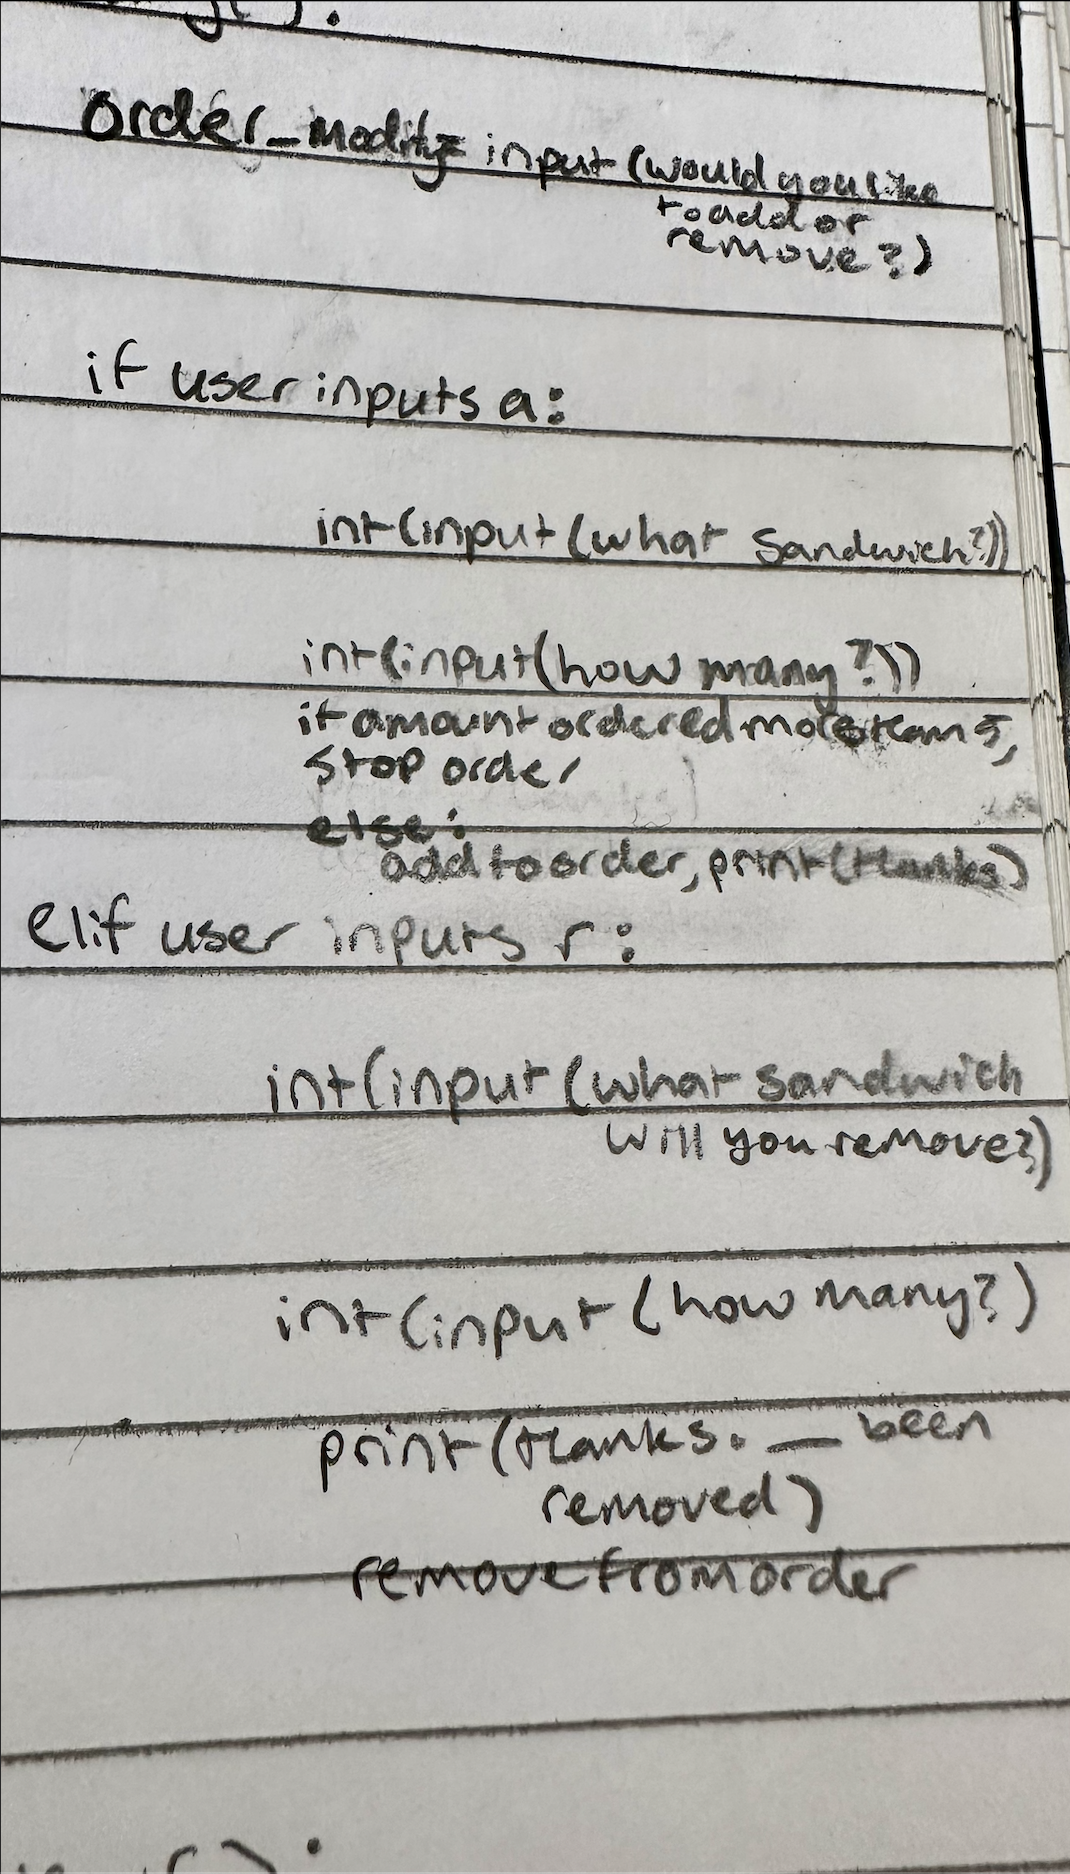 order_modify= input (would you like
to add or
remove?)
if user inputs a:
int(input(what sandwich?))
int(input(how many?))
if amount ordered more than 5,
stop order
else:
add to order, print(thanks)
elif user inputs r:
int(input(what sandwich
will you remove?)
int(input(how many?)
print(thanks. __ been
removed)
remove from order